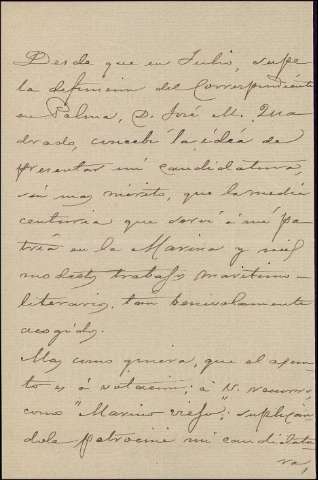 Desde que en Julio, supe
la defuncion del Correspondiente
en Palma, D. José M. Qua
drado, concebí la idéa de
presentar mi candidatura,
sin mas mérito, que la media
centuria que serví á mi pa
tria en la Marina y mis
modestos trabajos maritimo-
literarios, tan benevolamente
acogidos.
Mas como quiera, que el asun
to es á votacion; á V. recurro,
como "Marino viejo", suplican
dole patrocine mi candidatu
ra,